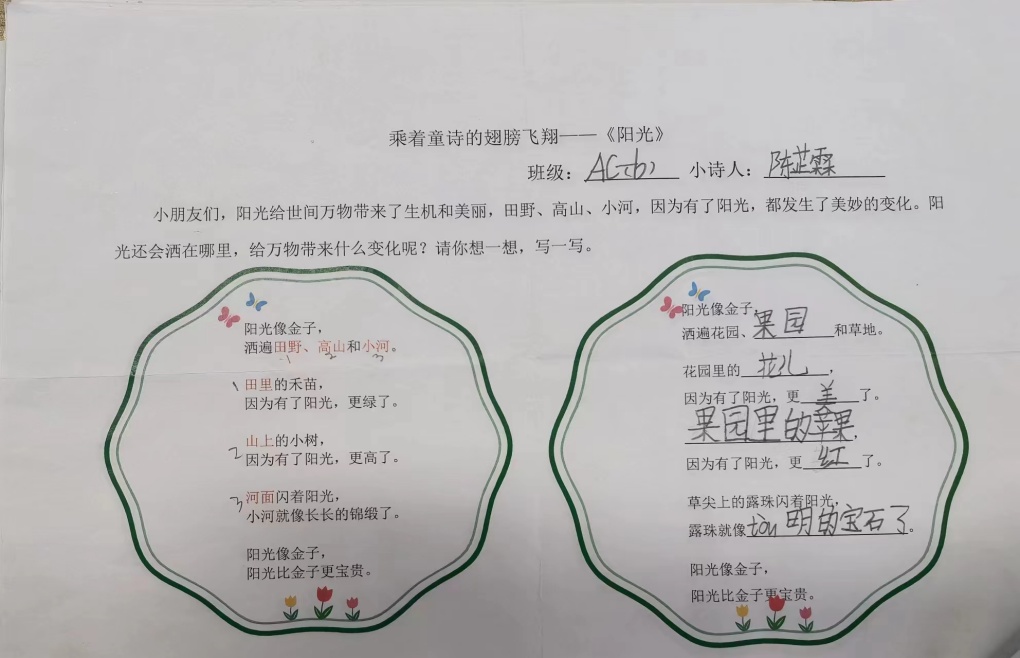 乘着童诗的翅膀飞翔——《阳光》
班级：A(一b) 小诗人：陈芷霖
小朋友们，阳光给世间万物带来了生机和美丽，田野、高山、小河，因为有了阳光，都发生了美妙的变化。阳
光还会洒在哪里，给万物带来什么变化呢？请你想一想，写一写。
阳光像金子，
洒遍田野、高山和小河。
1 2 3
1 田里的禾苗，
因为有了阳光，更绿了。
2 山上的小树，
因为有了阳光，更高了。
3 河面闪着阳光，
小河就像长长的锦缎了。
阳光像金子，
阳光比金子更宝贵。
阳光像金子，
洒遍花园、果园和草地。
花园里的花儿，
因为有了阳光，更美了。
果园里的苹果，
因为有了阳光，更红了。
草尖上的露珠闪着阳光，
露珠就像tòu明的宝石了。
阳光像金子，
阳光比金子更宝贵。